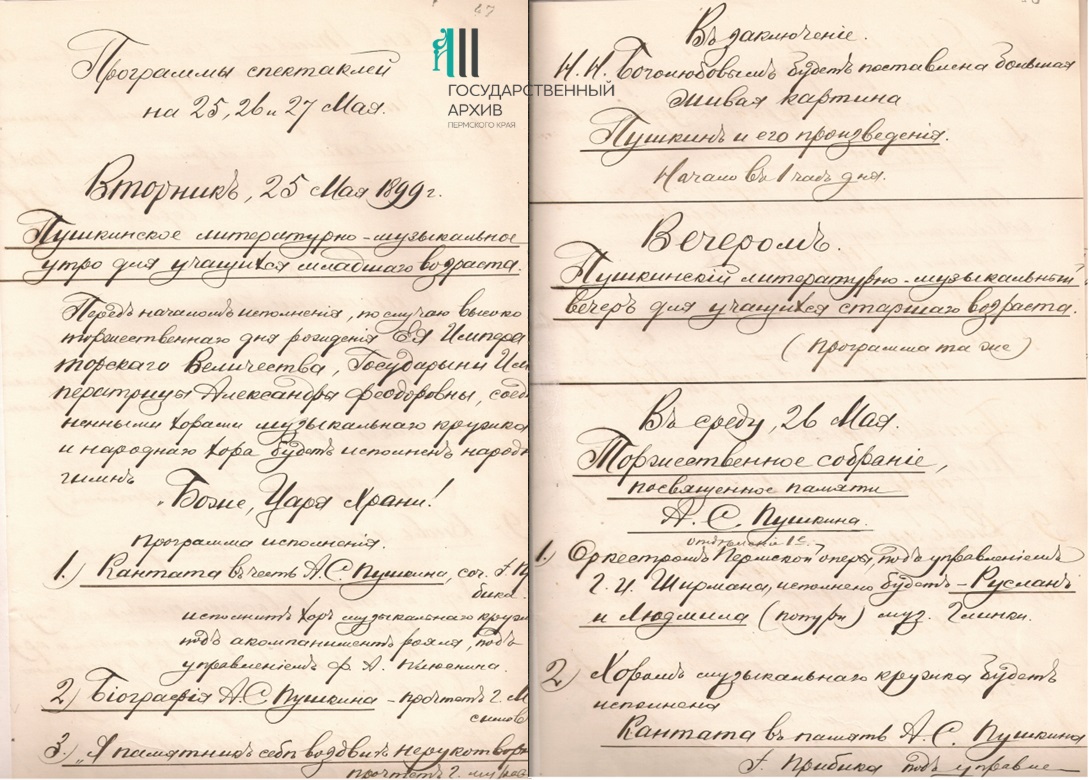 47
Программы спектаклей
на 25, 26 и 27 Мая.
Вторникъ, 25 Мая 1899 г.
Пушкинское литературно-музыкальное
утро для учащихся младшаго возраста.
Передъ началомъ исполненія, по случаю высоко
торжественнаго дня рожденія Ея Импера
торскаго Величества, Государыни Им
ператрицы Александры Феодоровны, соед
ненными хорами музыкальнаго кружка
и народнаго хора будетъ исполненъ народн
гимнъ
"Боже, Царя Храни!
Программа исполненія.
1.) Кантата въ честь А. С. Пушкина, соч. I. Пр
бика.
исполнитъ хоръ музыкальнаго кружк
подъ акомпаниментъ рояля, подъ
управленіемъ Ф. А.
2) Біографія А. С Пушкина - прочтетъ г. М
3.) "Я памятникъ себѣ воздвигъ нерукотвор
прочтетъ г.
ГОСУДАРСТВЕННЫЙ
АРХИВ
ПЕРМСКОГО КРАЯ
Въ заключеніе.
Н. Н. Боголюбовымъ будетъ поставлена большая
живая картина
Пушкинъ и его произведенія.
Начало въ 1 часъ дня.
Вечеромъ.
Пушкинскій литературно-музыкальный
вечеръ для учащихся старшаго возраста.
(Программа та же)
Въ среду, 26 Мая.
Торжественное собраніе,
посвященное памяти
А. С. Пушкина.
отдѣленіе 1е.
1.) Оркестромъ Пермской оперы, подъ управленіемъ
Г. И. Ширмана, исполнено будетъ - Русланъ
и Людмила (попури) муз. Глинки.
2) Хоромъ музыкальнаго кружка будетъ
исполнена
Кантата въ память А. С. Пушкина
I. Прибика подъ управле